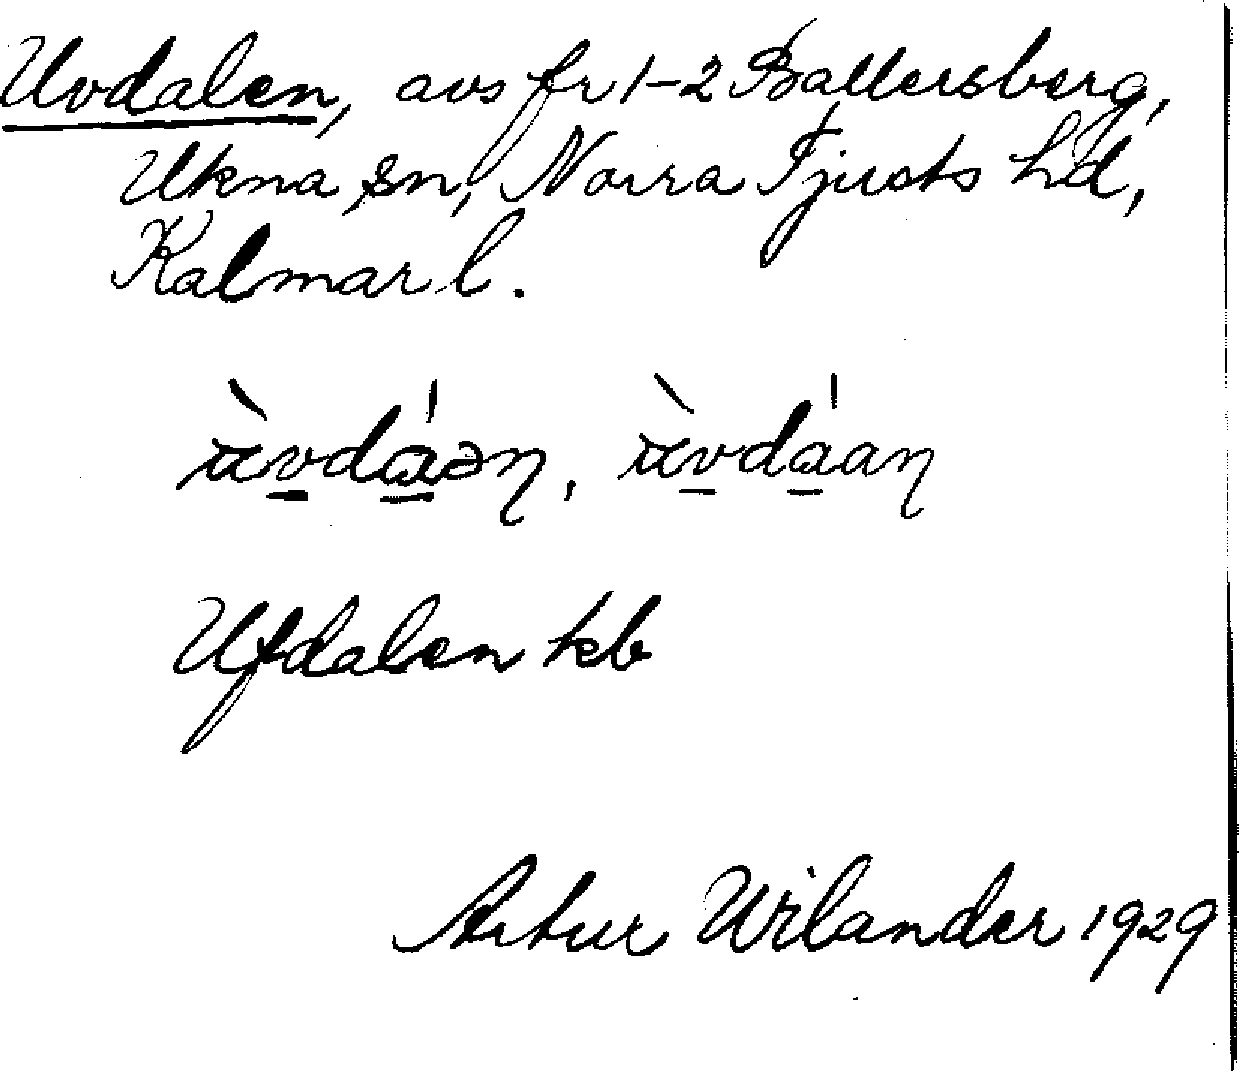 Uvdalen, avs fr 1-2 Ballersberg,
Ukna sn, Norra Tjusts hd,
Kalmar l.
Ufdalen kb
Artur Wilander 1929